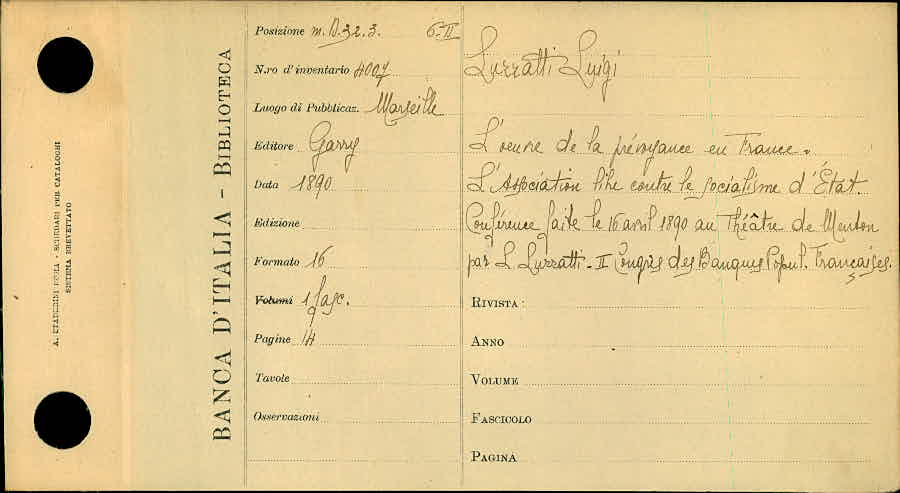 A. STADERINI ROMA - SCHEDARI PER CATALOGHI
SISTEMA BREVETTATO
BANCA D'ITALIA - BIBLIOTECA
Posizione m. D. 32. 3. 6-II
N.ro d'inventario 4007
Luogo di Pubblicaz. Marseille
Editore Garry
Data 1890
Edizione
Formato 16
Volumi 1 fasc.
Pagine 14
Tavole
Osservazioni
Luzzatti Luigi
L'oeuvre de la prévoyance en France.
L'Association libre contre le socialisme d'État.
Conférence faite le 16 avril 1890 au Théâtre de Menton
par L. Luzzatti - II Congrès des Banques Popul. Françaises.
RIVISTA:
ANNO
VOLUME
FASCICOLO
PAGINA